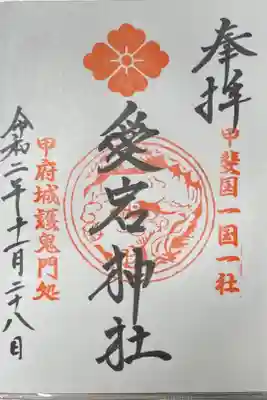 奉拝
甲斐国一国一社
愛宕神社
甲府城護鬼門処
令和二年十一月二十八日